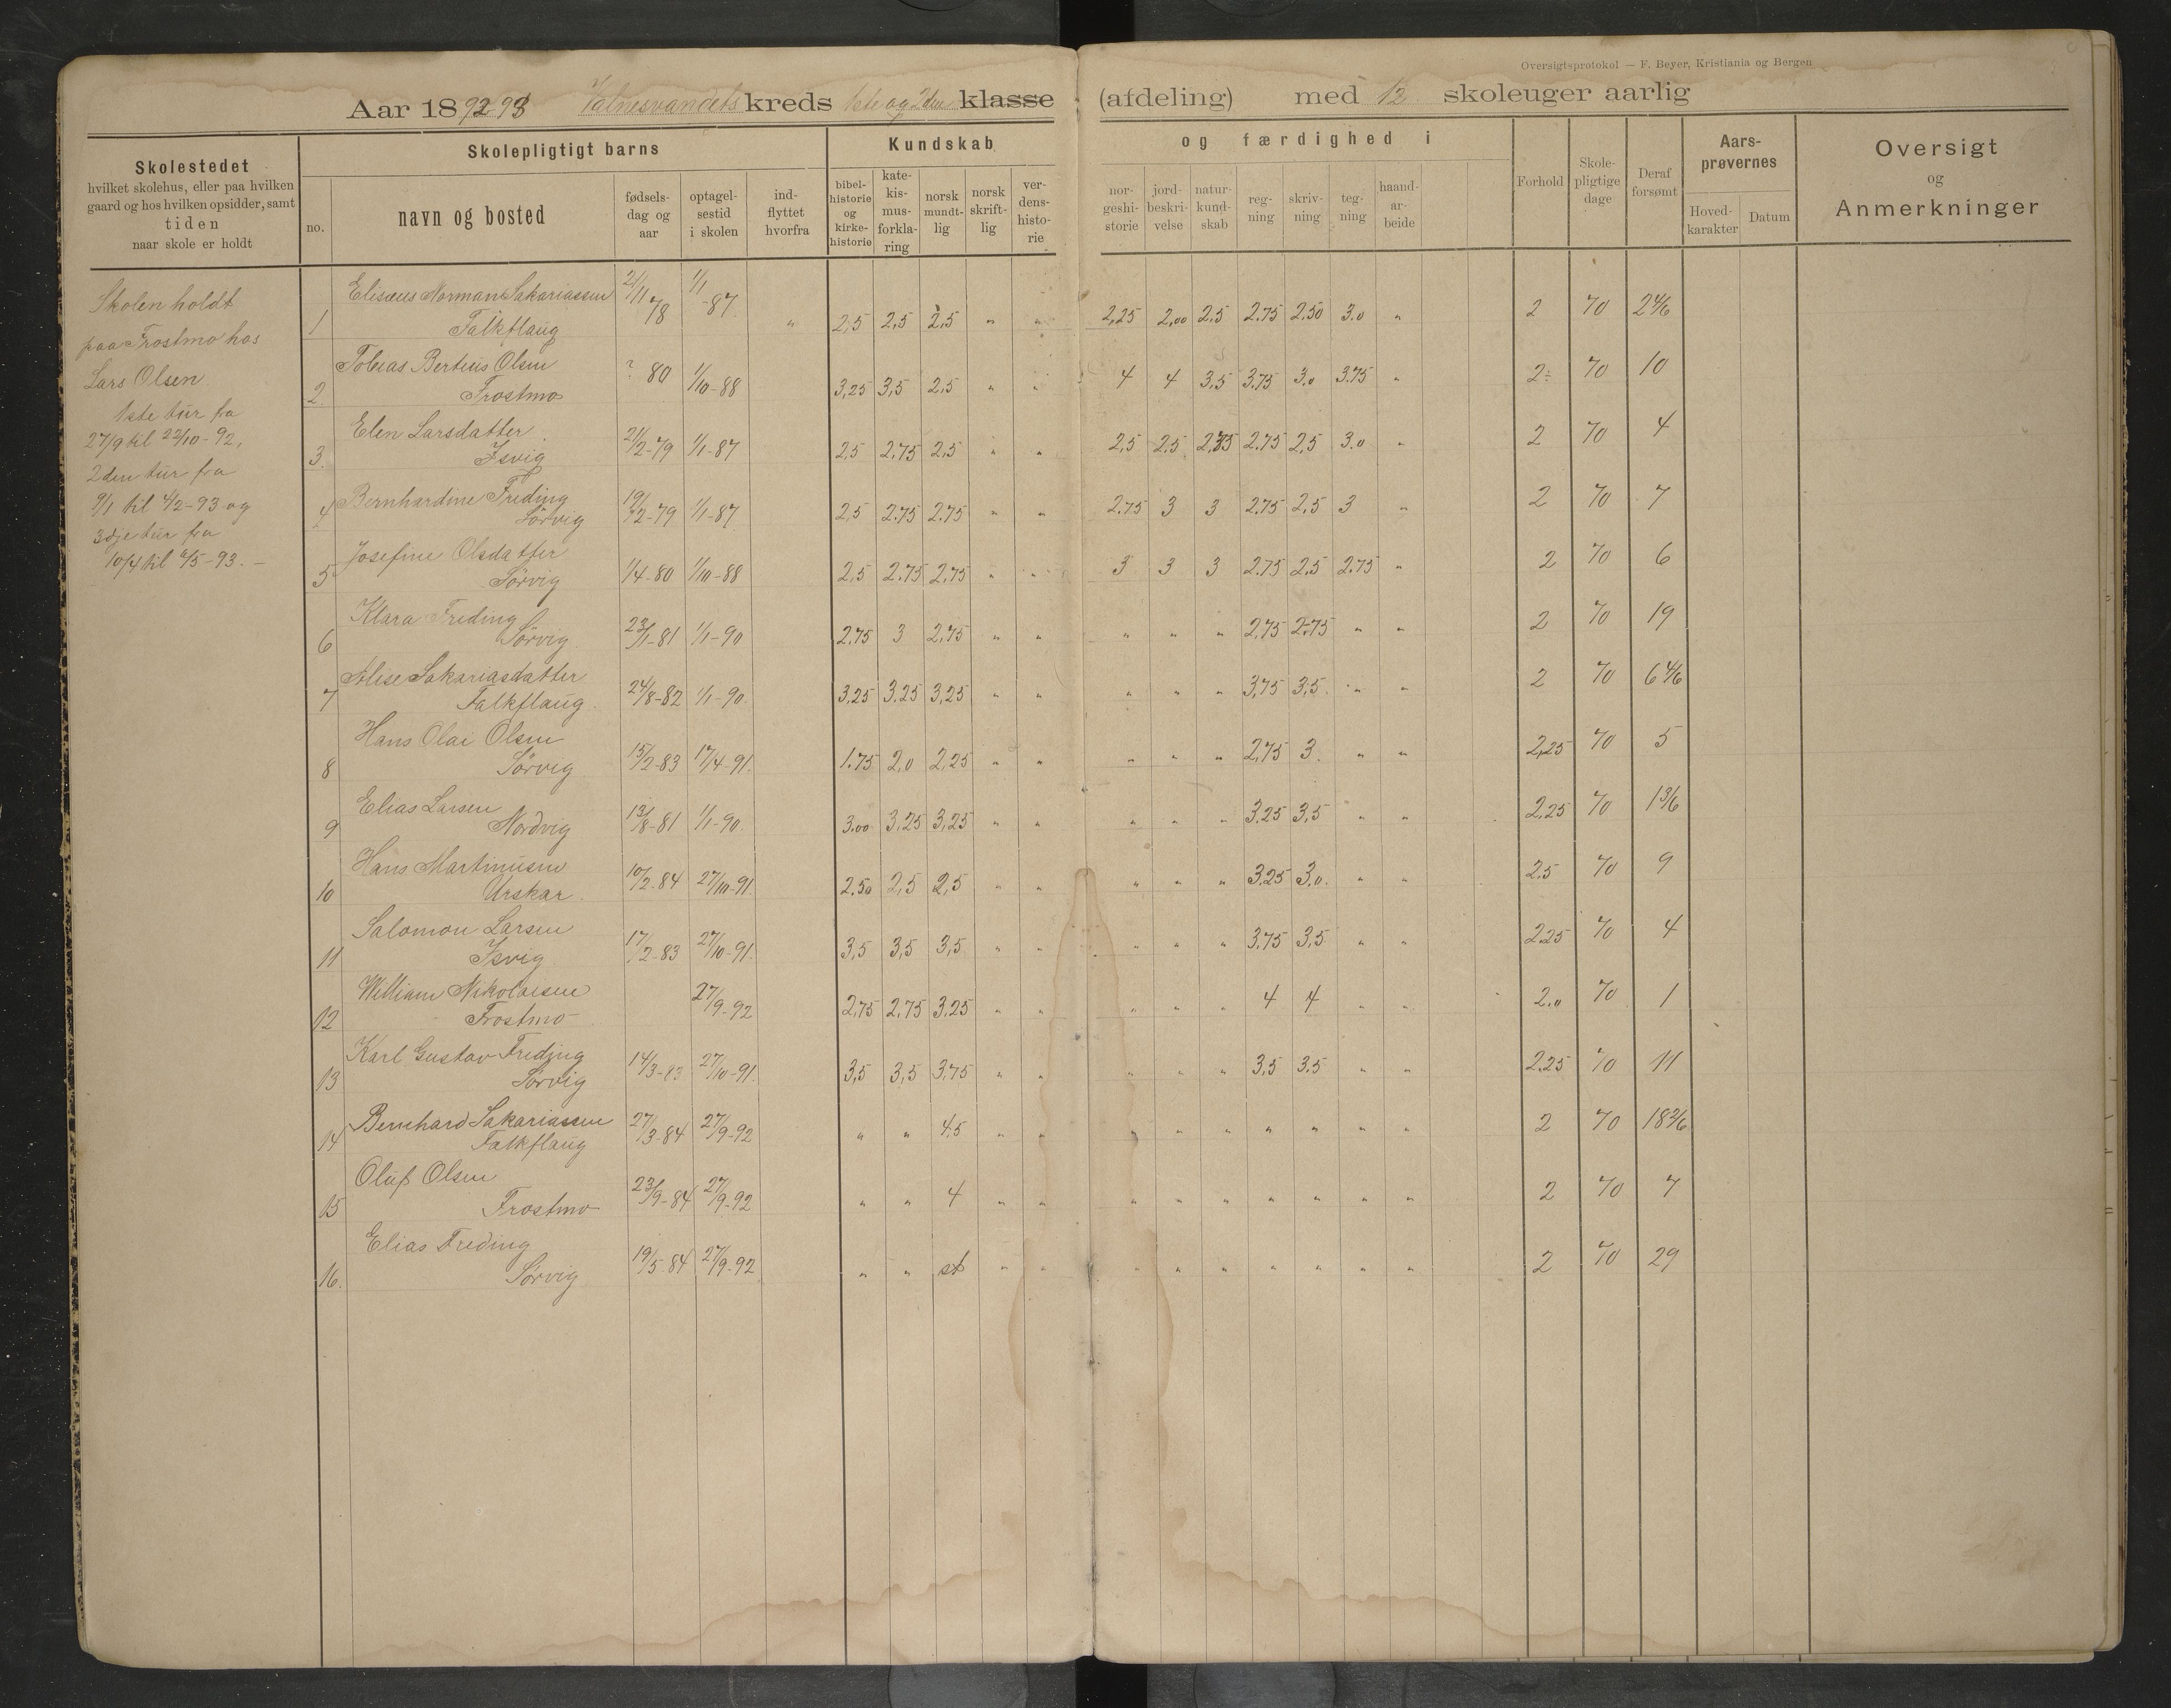 Oversigtsprotokol — F. Beyer, Kristiania og Bergen
Aar 1892-93 Valnesvandets kreds 1ste og 2den klasse (afdeling) med 12 skoleuger aarlig
Skolestedet
hvilket skolehus, eller paa hvilken
gaard og hos hvilken opsidder, samt
tiden
naar skole er holdt
Skolepligtigt barns
no.
navn og bosted
fødsels-
dag og
aar
optagel-
sestid
i skolen
ind-
flyttet
hvorfra
Kundskab og færdighed i
bibel-
historie
og
kirke-
historie
kate-
kis-
mus-
forkla-
ring
norsk
mundt-
lig
norsk
skrift-
lig
ver-
dens-
histo-
rie
nor-
geshi-
storie
jord-
beskri-
velse
natur-
kund-
skab
reg-
ning
skriv-
ning
teg-
ning
haand-
ar-
beide
Forhold
Skole-
pligtige
dage
Deraf
forsømt
Aars-
prøvernes
Hoved-
karakter
Datum
Oversigt
og
Anmerkninger
Skolen holdt
paa Frostmo hos
Lars Olsen
1ste tur fra
27/9 til 22/10-92,
2den tur fra
9/1 til 4/2-93 og
3dje tur fra
10/4 til 6/5-93. –
Elisæus Norman Sakariassen 21/11 78 1/1 -87
1 Falkflaug " 2,5 2,5 2,5 " " 2,25 2,00 2.5 2.75 2.50 3.0 " 2 70 2 4/6
Tobias Bertius Olsen ? 80 1/10-88
2 Frostmo 3,25 3,5 2,5 " " 4 4 3.5 3.75 3.0 3.75 " 2÷ 70 10
Elen Larsdatter 21/2-79 1/1-87
3. Isvig 2,5 2.75 2,5 " " 2,5 2.5 2.75 2.75 2.5 3.0 " 2 70 4
4 Bernhardine Freding 19/2-79 1/1-87
Sörvig 2,5 2.75 2.75 " " 2.75 3 3 2.75 2.5 3 " 2 70 7
Josefine Olsdatter
5 Sörvig 1/4-80 1/10-88 2,5 2.75 2,75 " " 3 3 3 2.75 2.5 2.75 " 2 70 6
Klara Freding
6 Sörvig 23/1-81 1/1-90 2.75 3 2,75 " " " " " 2,75 2.75 " " 2 70 19
Alise Sakariasdatter
7 Falkflaug 24/8-82 1/1-90. 3.25 3.25 3,25 " " " " " 3,75 3,5 " " 2 70 6 4/6
Hans Olai Olsen
8 Sörvig 15/2-83 17/4-91. 1.75 2,0 2,25 " " " " " 2,75 3. " " 2,25 70 5
Elias Larsen
9 Nordvig 13/8-81 1/1-90. 3.00 3,25 3,25 " " " " " 3.25 3,5 " " 2,25 70 1 3/6
Hans Martinusen
10 Urskar 10/2-84 27/10-91. 2.50 2,5 2,5 " " " " " 3.25 3,0. " " 2.5 70 9
Salomon Larsen
11 Isvig 17/2-83 27/10-91. 3,5 3,5 3,5 " " " " " 3.75 3,5 " " 2.25 70 4
William Nikolaisen
12 Frostmo 27/9-92 2,75 2.75 3.25 " " " " " 4 4 " " 2.0 70 1
Karl Gustav Freding
13 Sörvig 14/3-83 27/10-91. 3,5 3,5 3,75 " " " " " 3,5 3.5 " " 2.25 70 11
Bernhard Sakariassen
14 Falkflaug 27/3-84 27/9-92 " " 4.5 " " " " " " " " " 2 70 18 2/6
Oluf Olsen
15 Frostmo 23/9-84 27/9-92 " " 4 " " " " " " " " " 2 70 7
Elias Freding
16. Sörvig 19/5-84 27/9-92 " " st " " " " " " " " " 2 70 29